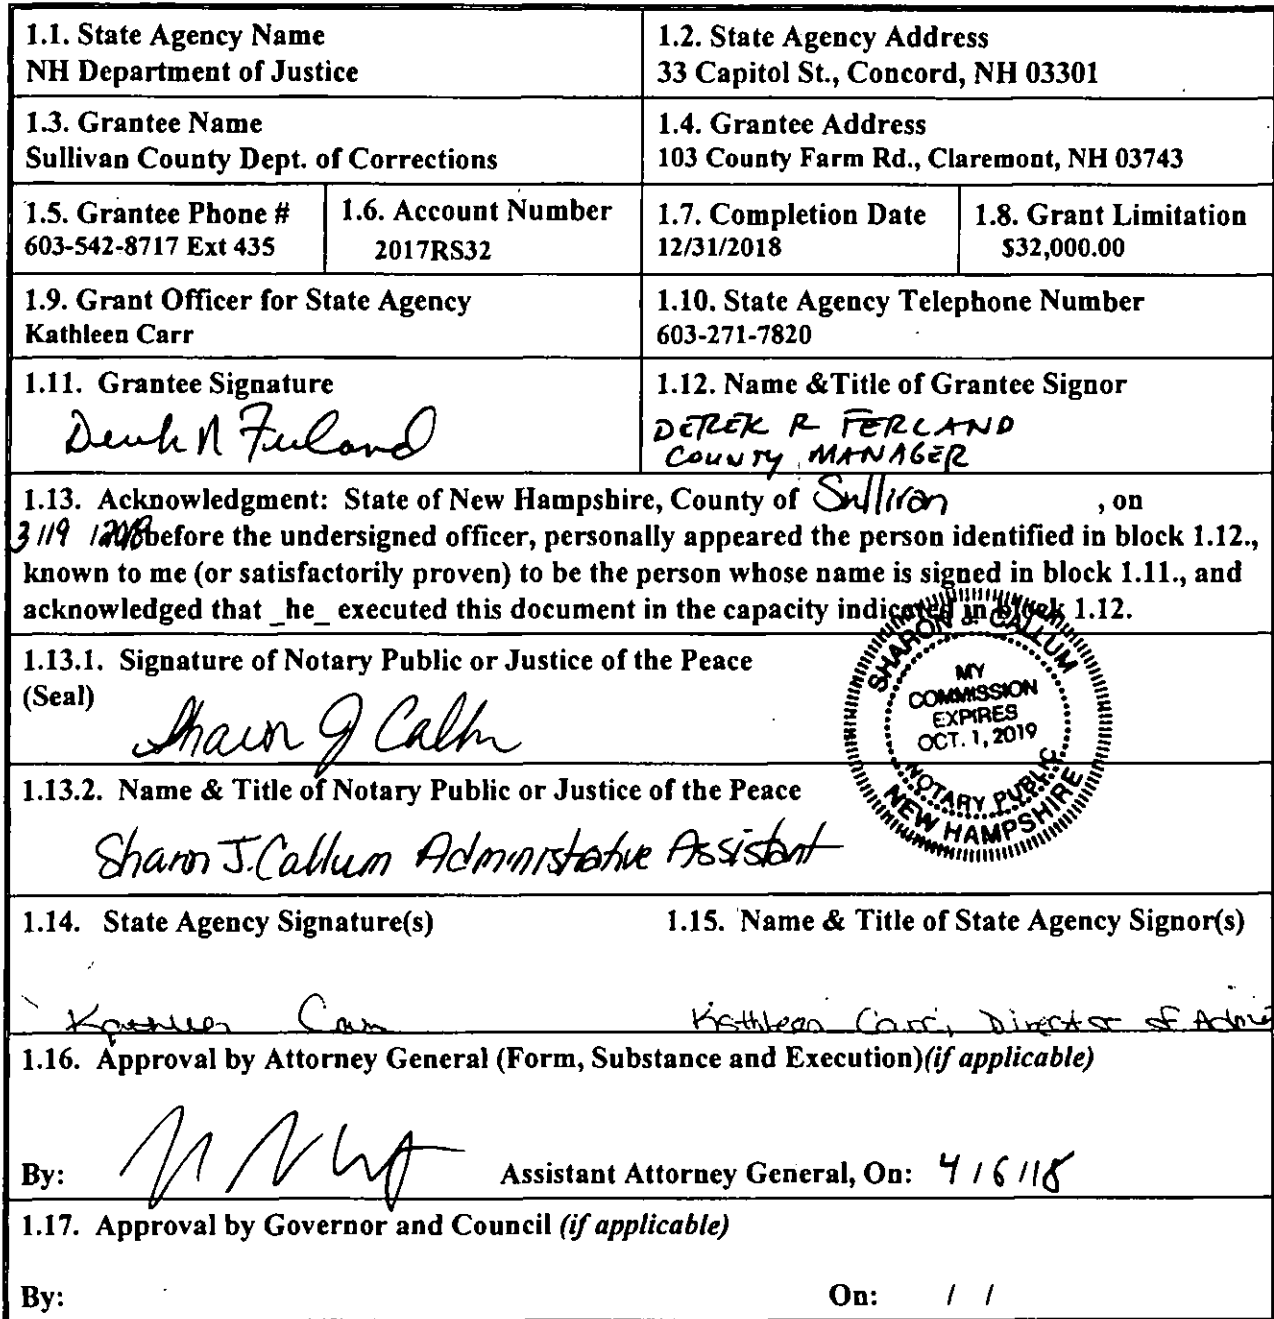 1.1. State Agency Name
NH Department of Justice
1.2. State Agency Address
33 Capitol St., Concord, NH 03301
1.3. Grantee Name
Sullivan County Dept. of Corrections
1.4. Grantee Address
103 County Farm Rd., Claremont, NH 03743
1.5. Grantee Phone #
603-542-8717 Ext 435
1.6. Account Number
2017RS32
1.7. Completion Date
12/31/2018
1.8. Grant Limitation
$32,000.00
1.9. Grant Officer for State Agency
Kathleen Carr
1.10. State Agency Telephone Number
603-271-7820
1.11. Grantee Signature
1.12. Name &Title of Grantee Signor
DEREK R FERLAND
COUNTY MANAGER
1.13. Acknowledgment: State of New Hampshire, County of Sullivan , on
3/19/2018 before the undersigned officer, personally appeared the person identified in block 1.12.,
known to me (or satisfactorily proven) to be the person whose name is signed in block 1.11., and
acknowledged that _he_ executed this document in the capacity indicated in block 1.12.
1.13.1. Signature of Notary Public or Justice of the Peace
(Seal)
Sharon J Callum
SHARON J. CALLUM
MY
COMMISSION
EXPIRES
OCT. 1, 2019
NOTARY PUBLIC
NEW HAMPSHIRE
1.13.2. Name & Title of Notary Public or Justice of the Peace
Sharon J. Callum Administrative Assistant
1.14. State Agency Signature(s)
1.15. Name & Title of State Agency Signor(s)
Kathleen Carr
Kathleen Carr, Director of Admin
1.16. Approval by Attorney General (Form, Substance and Execution)(if applicable)
By: Assistant Attorney General, On: 4/6/18
1.17. Approval by Governor and Council (if applicable)
By: On: / /